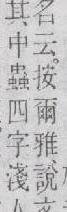 名云按爾雅說
其中蟲四字淺